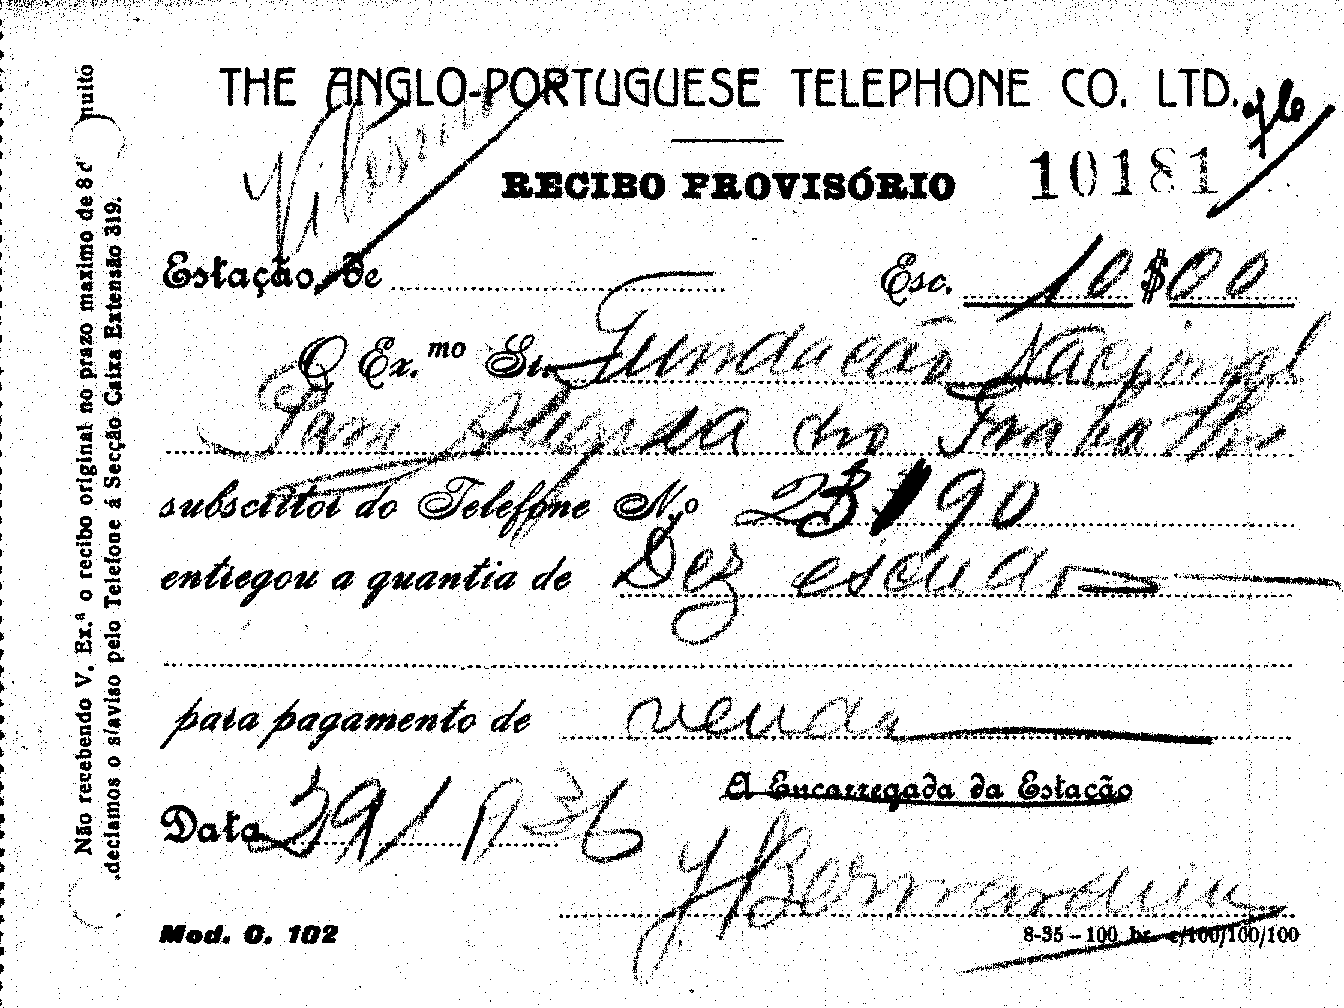 THE ANGLO-PORTUGUESE TELEPHONE CO. LTD.
RECIBO PROVISÓRIO 10181
Estação de
Esc. 10$00
O Ex.mo Sr. Fundação Nacional
Para Alegria do Trabalho
subscritor do Telefone N.o
entregou a quantia de Dez escudos
para pagamento de renda
A Encarregada da Estação
Data
Mod. C. 102
8-35 – 100 br. c/100/100/100
Não recebendo V. Ex.ª o recibo original no prazo maximo de 8 muito
declamos o s/aviso pelo Telefone á Secção Caixa Extensão 319.